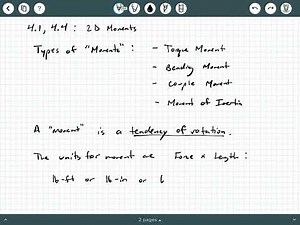 4.1, 4.4 : 2D Moments
Types of "Moments" : - Torque Moment
- Bending Moment
- Couple Moment
- Moment of Inertia
A "moment" is a tendency of rotation.
The units for moment are Force x Length :
lb-ft or lb-in or
2 pages